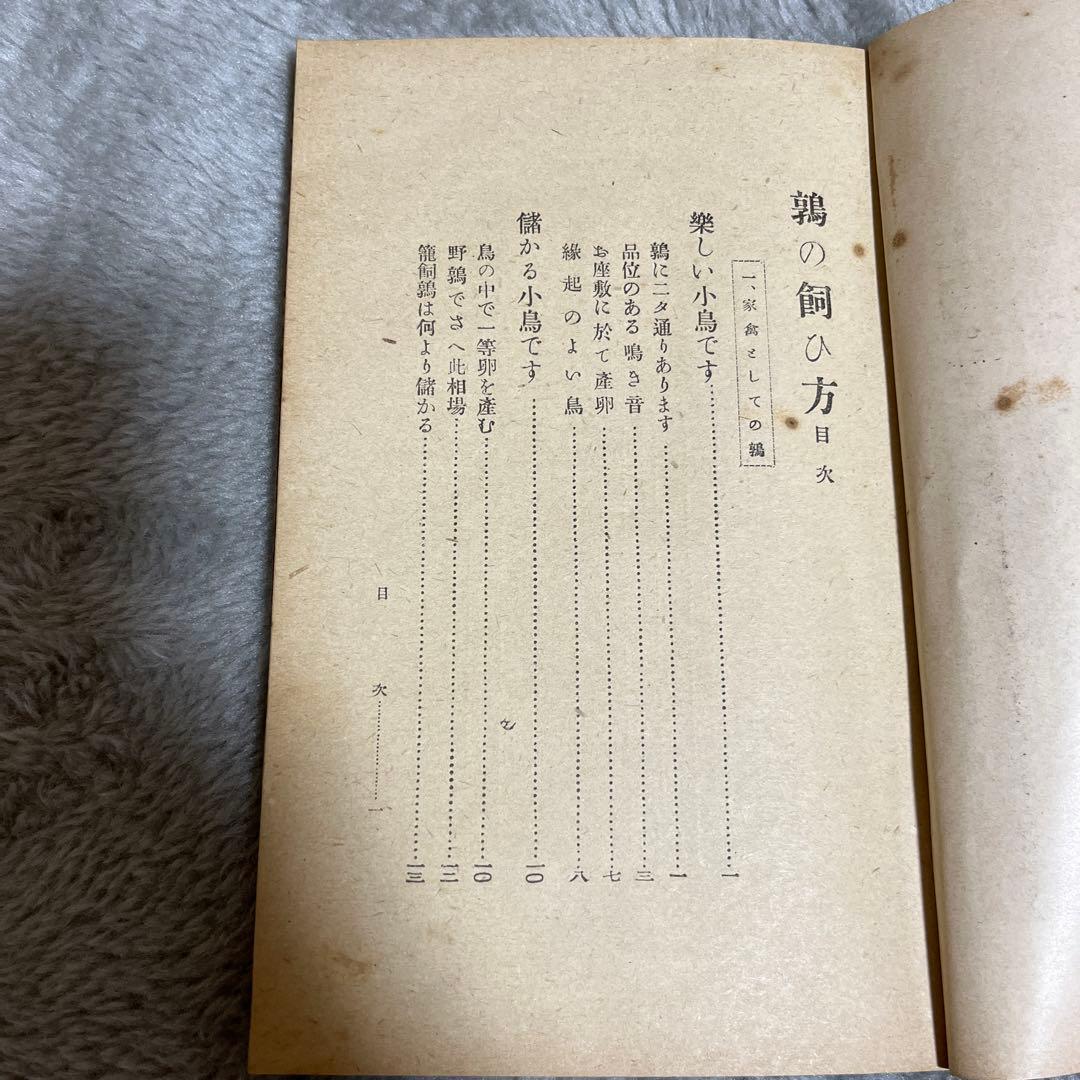 鶉の飼ひ方目次
一、家禽としての鶉
樂しい小鳥です……一
鶉に二タ通りあります……一
品位のある鳴き音……三
お座敷に於て產卵……七
緣起のよい鳥……八
儲かる小鳥です……一〇
鳥の中で一等卵を產む……一〇
野鶉でさへ此相場……一二
籠飼鶉は何より儲かる……一三
目次……一